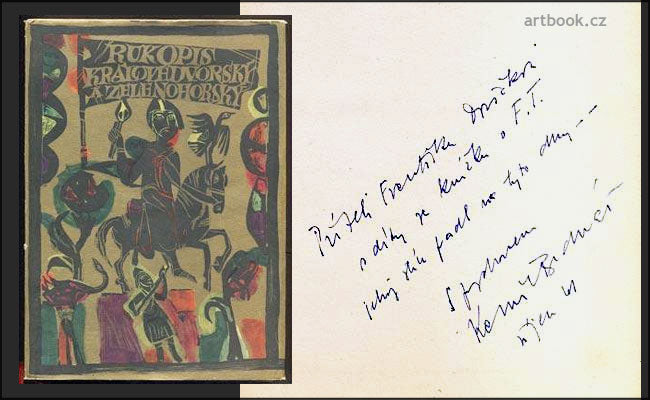 artbook.cz
RUKOPIS
KRÁLOVEDVORSKÝ
A ZELENOHORSKÝ
Příteli Františku
s díky za knížku o F. T.
jehož stín padl na tyto dny --
S pozdravem
Kamil Bednář